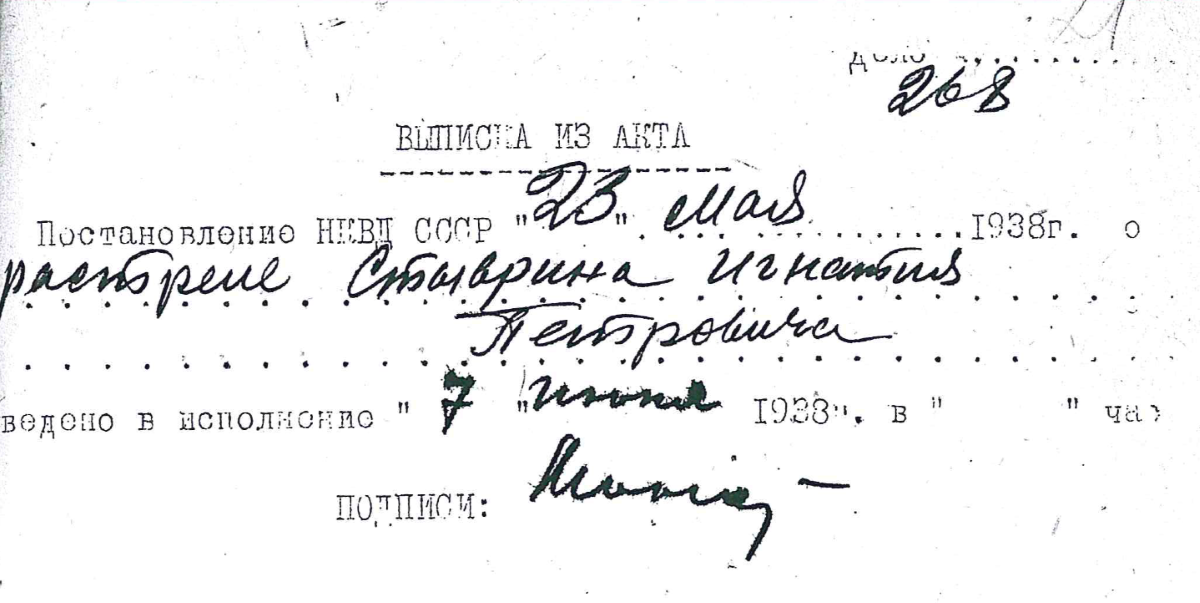 21
дело ...........
268
ВЫПИСКА ИЗ АКТА
Постановление НКВД СССР "23" мая 1938г. о
растреле Стыврина Игнатия
Петровича
ведено в исполнение "7" июня 1938г. в " " час
ПОДПИСИ: